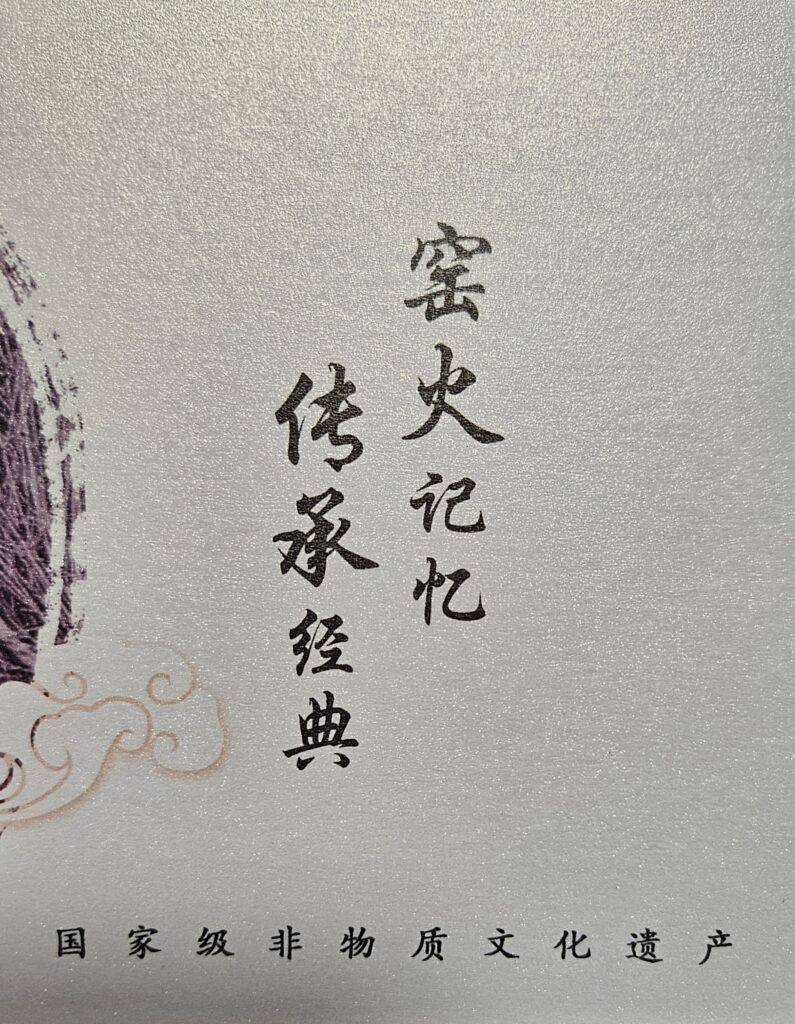 窑火记忆
传承经典
国家级非物质文化遗产